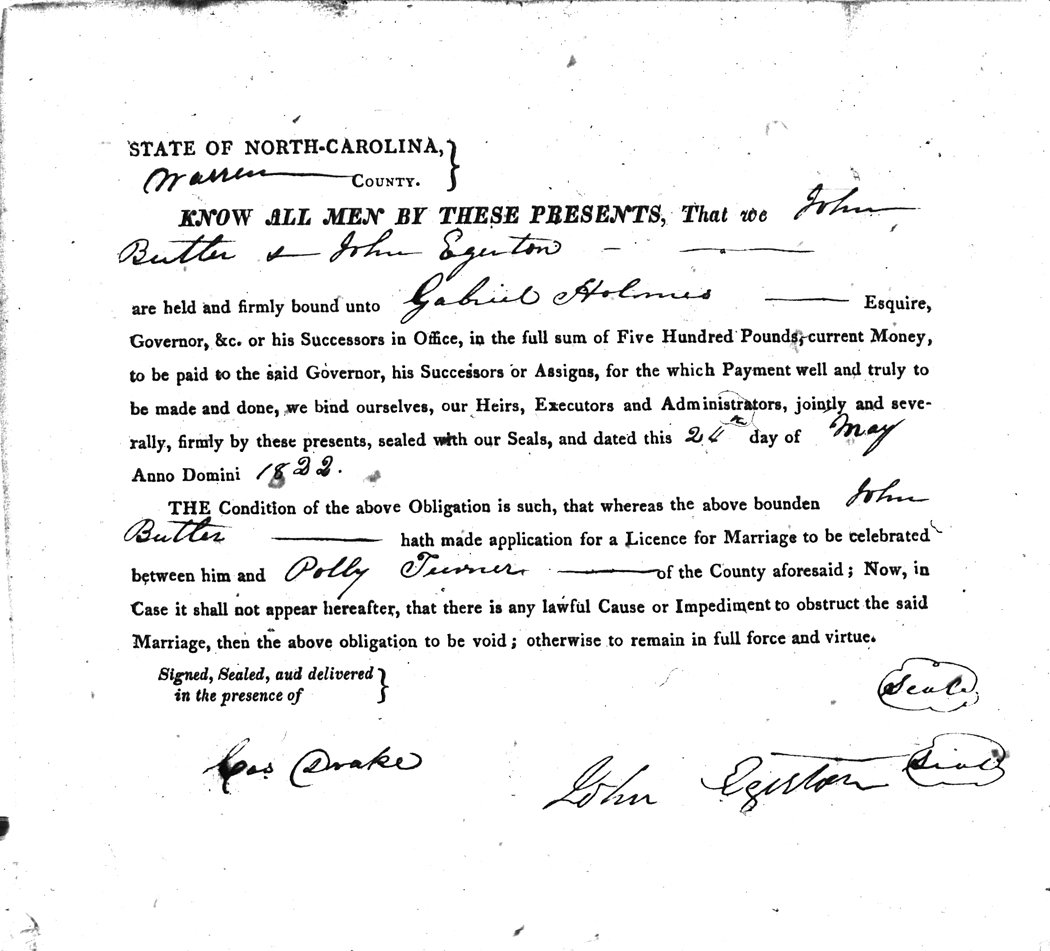 STATE OF NORTH-CAROLINA,
Warren COUNTY.
KNOW ALL MEN BY THESE PRESENTS, That we John
Butler & John Egerton
are held and firmly bound unto Gabriel Holmes Esquire,
Governor, &c. or his Successors in Office, in the full sum of Five Hundred Pounds, current Money,
to be paid to the said Governor, his Successors or Assigns, for the which Payment well and truly to
be made and done, we bind ourselves, our Heirs, Executors and Administrators, jointly and seve-
rally, firmly by these presents, sealed with our Seals, and dated this day of May
Anno Domini 1822.
THE Condition of the above Obligation is such, that whereas the above bounden John
Butler hath made application for a Licence for Marriage to be celebrated
between him and Polly Turner of the County aforesaid; Now, in
Case it shall not appear hereafter, that there is any lawful Cause or Impediment to obstruct the said
Marriage, then the above obligation to be void; otherwise to remain in full force and virtue.
Signed, Sealed, aud delivered
in the presence of
Seal
Drake
John Egerton Seal